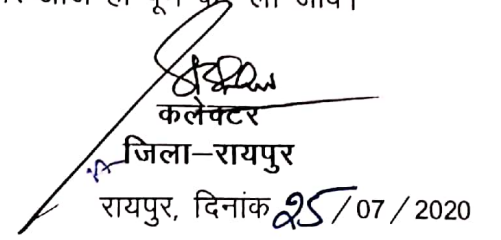 आज ही पूर्ण कर ली जावे।
कलेक्टर
जिला–रायपुर
रायपुर, दिनांक 25/07/2020